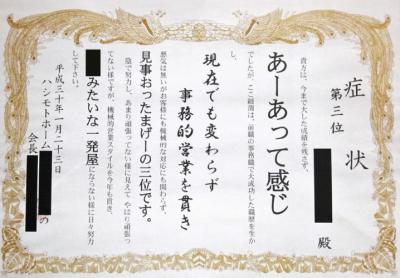 症状
第三位
殿
貴方は、今まで大した成績を残さず、
あーあって感じ
でしたが、ここ最近は、前職の事務職で大成功した職歴を生か
し、
現在でも変わらず
事務的営業を貫き
悪気は無いがお客様にも機械的な対応にも関わらず、
見事おったまげーの三位です。
陰で努力し、あまり頑張ってない様に見えて やはり頑張っ
てない様ですが、機械的営業スタイルを今年も貫き、
みたいな一発屋にならない様に日々努力
して下さい。
平成三十年一月二十三日
ハシモトホーム
会長
の